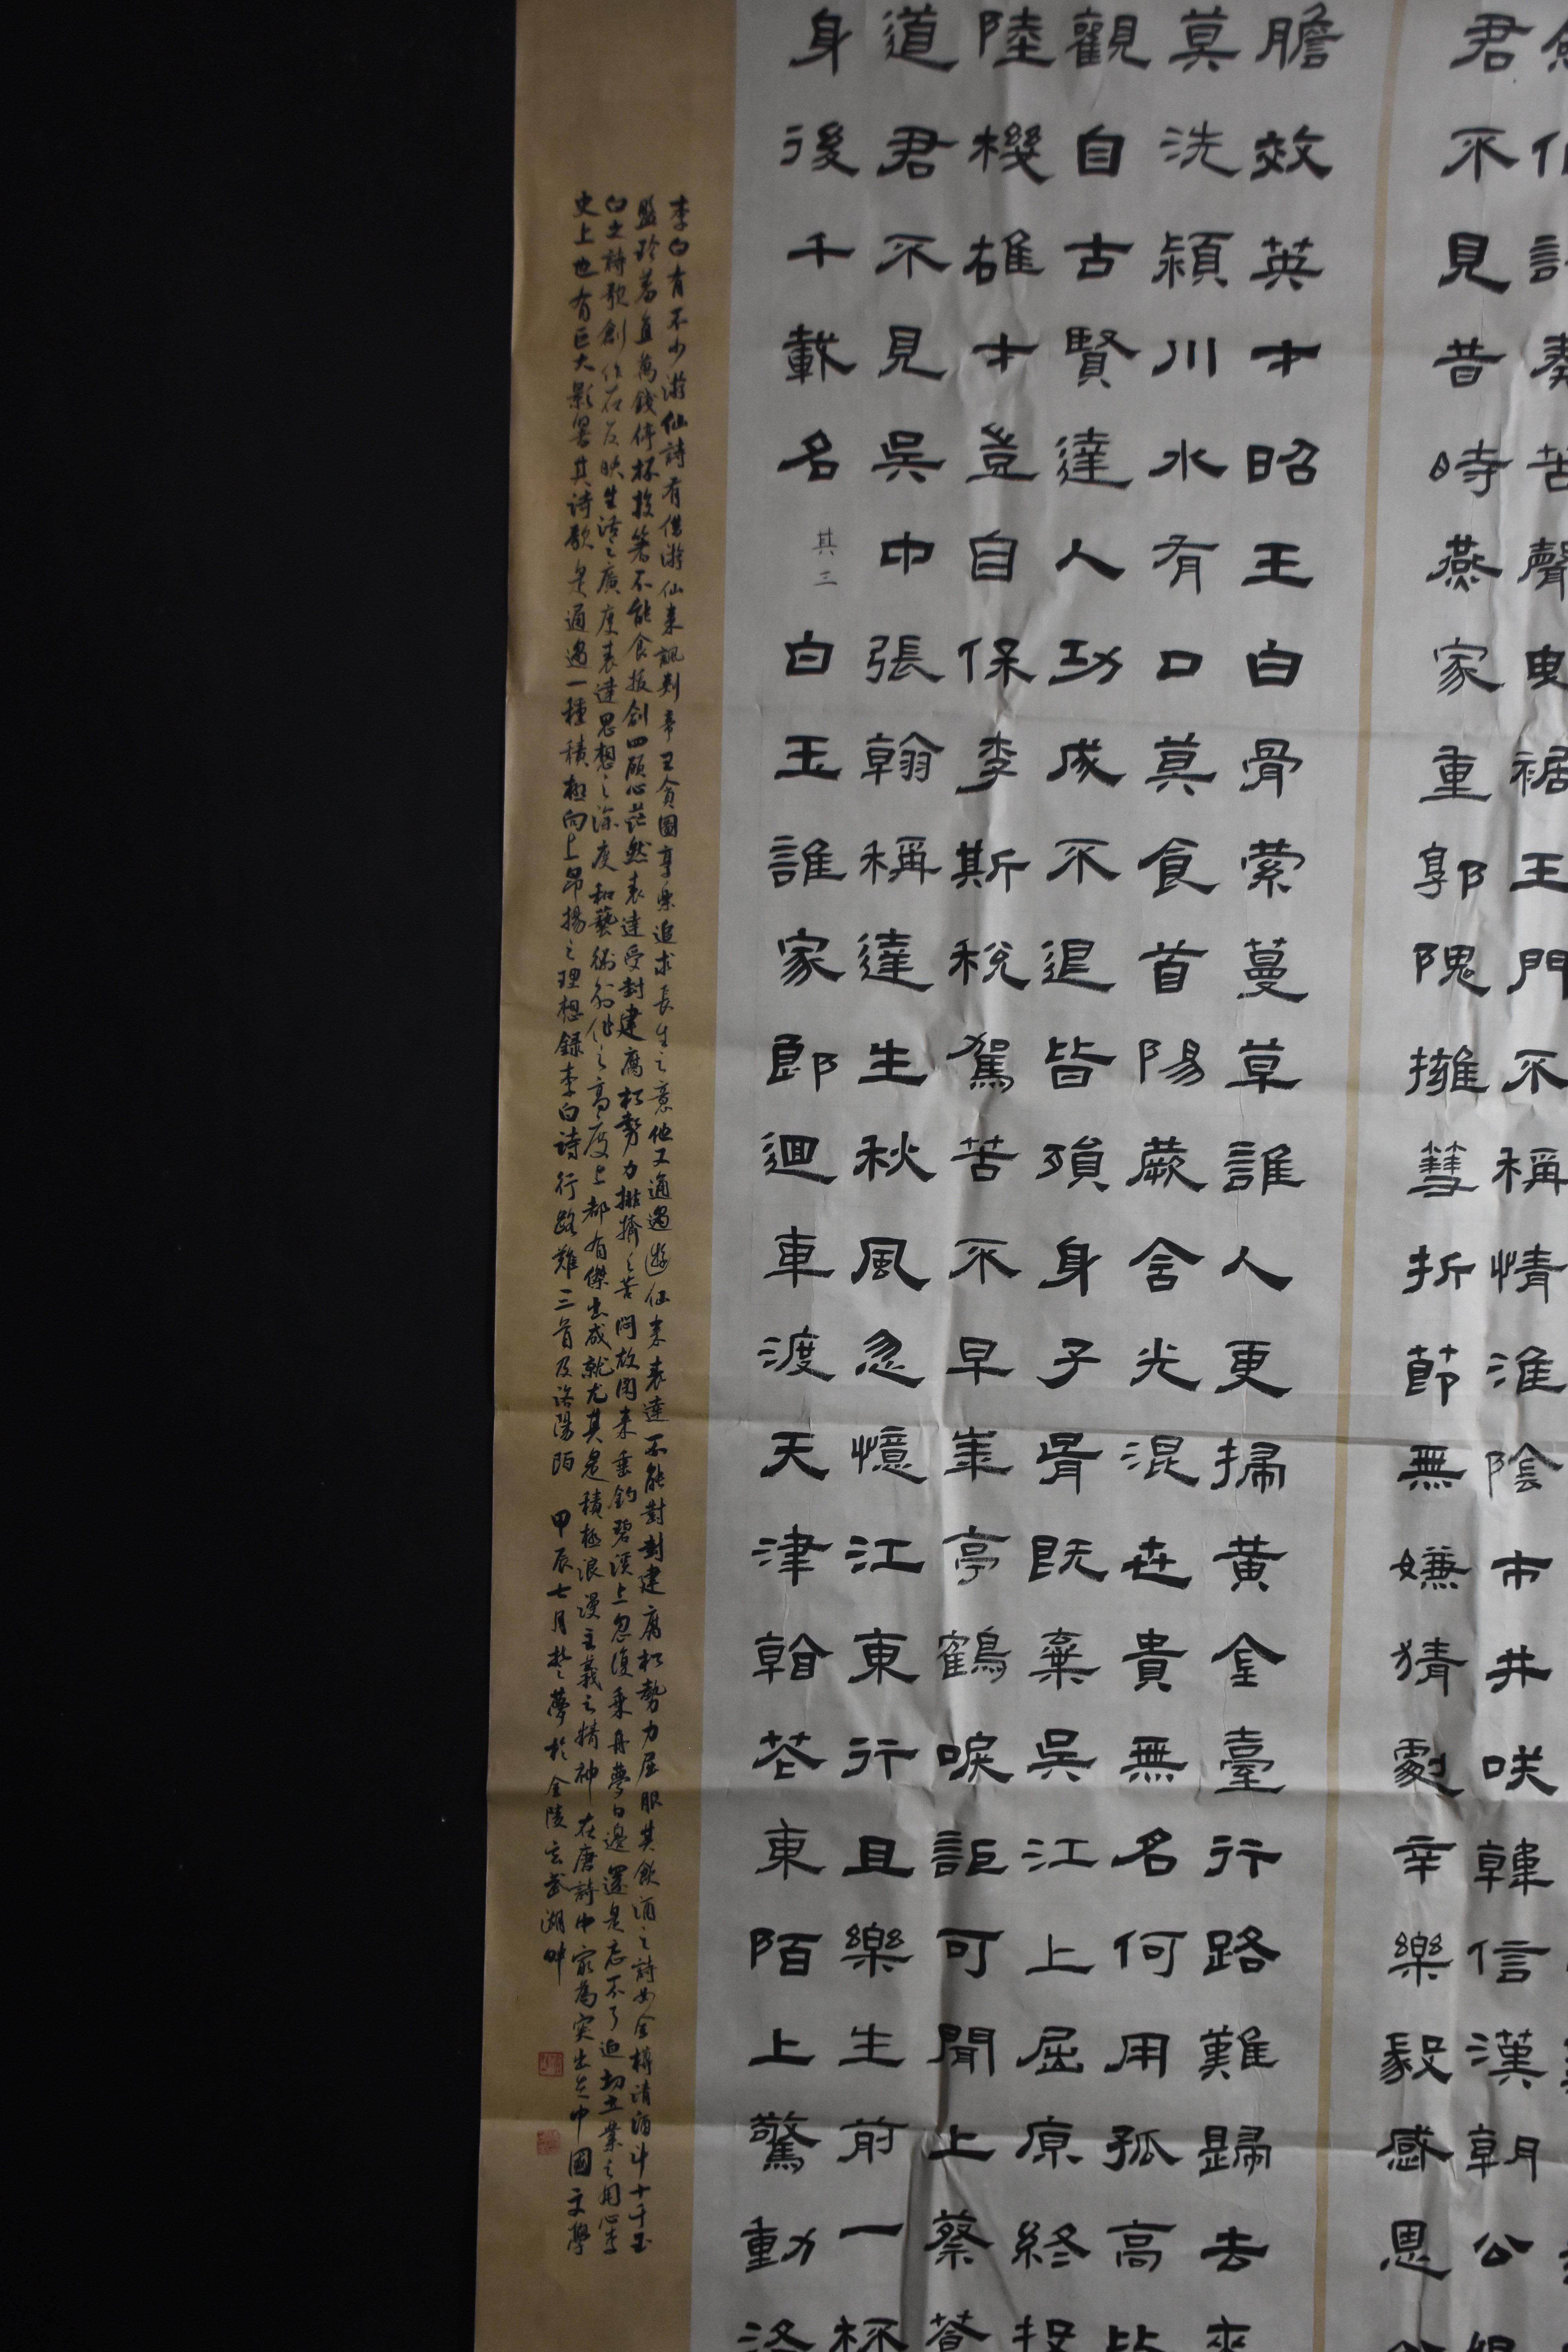 君不見昔時燕家重郭隗擁彗折節無嫌猜劇辛樂毅感恩
膽效英才昭王白骨縈蔓草誰人更掃黃金臺行路難歸去來
莫洗潁川水有口莫食首陽蕨含光混世貴無名何用孤高
觀自古賢達人功成不退皆殞身子胥既棄吳江上屈原終投
陸機雄才豈自保李斯稅駕苦不早華亭鶴唳詎可聞上蔡蒼
道君不見吳中張翰稱達生秋風忽憶江東行且樂生前一杯
身後千載名 其三 白玉誰家郎迴車渡天津看花東陌上驚動洛
李白有不少遊仙詩有借遊仙來諷刺帝王貪圖享樂追求長生之意他又通過遊仙來表達不能對封建腐朽勢力屈服其飲酒之詩如金樽清酒斗十千玉
盤珍羞直萬錢停杯投箸不能食拔劍四顧心茫然表達受封建腐朽勢力排擠之苦悶故閑來垂釣碧溪上忽復乘舟夢日邊還是忘不了迫切立業之用心李
白之詩歌創作在反映生活之廣度表達思想之深度和藝術創作之高度上都有傑出成就尤其是積極浪漫主義之精神在唐詩中最為突出是中國文學
史上也有巨大影響其詩歌是通過一種積極向上昂揚之理想錄李白詩行路難三首及洛陽陌 甲辰七月楚夢於金陵玄武湖畔